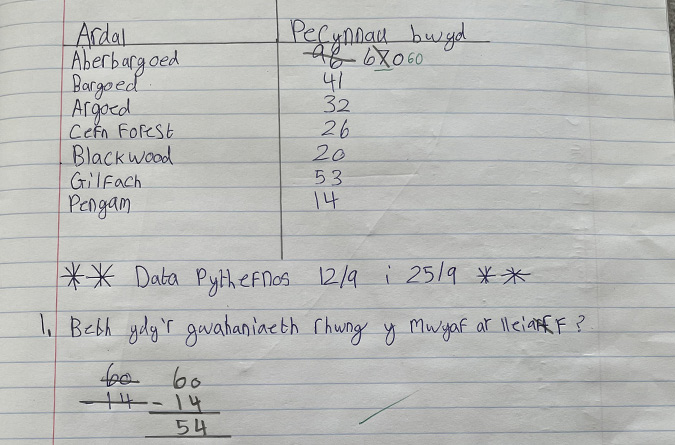 Ardal Pecynnau bwyd
Aberbargoed 60
Bargoed 41
Argoed 32
Cefn Forest 26
Blackwood 20
Gilfach 53
Pengam 14
** Data Pythefnos 12/9 i 25/9 **
1. Beth ydy'r gwahaniaeth rhwng y mwyaf ar lleiaf?
60 60
- 14 - 14
54